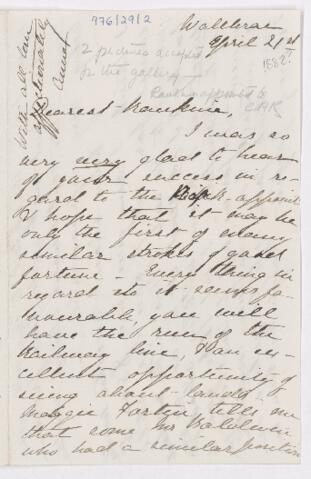 976/29/2
With all love
affectionately
Annot
Wallbrae
April 21st
1882?
2 pictures accepted
for the gallery
appointed to
C.P.R.
Dearest Frankine,
I was so
very very glad to hear
of your success in re-
gard to the appoint
I hope that it may be
only the first of many
similar strokes of good
fortune - Every thing in
regard to it seems fa-
vourable, you will
have the run of the
Railway line, & an ex-
cellent opportunity of
seeing about lands.
Maggie tells me
that some Mr Baldwin
who had a similar position